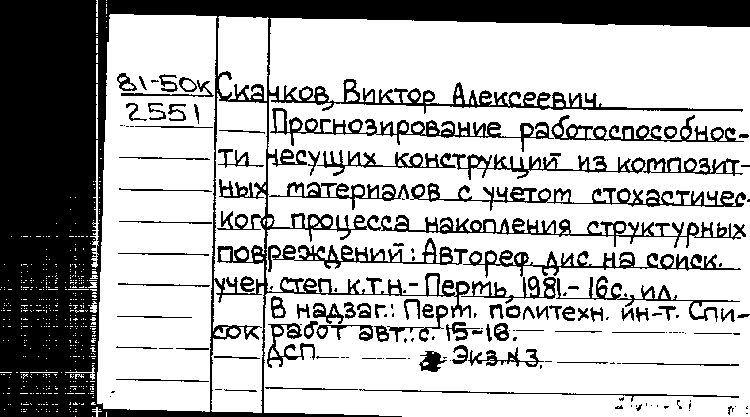 81-50к
2551
Скачков, Виктор Алексеевич.
Прогнозирование работоспособнос-
ти несущих конструкций из композит-
ных материалов с учетом стохастичес-
кого процесса накопления структурных
повреждений: Автореф. дис. на соиск.
учен. степ. к.т.н.- Пермь, 1981.- 16с., ил.
В надзаг.: Перм. политехн. ин-т. Спи-
сок работ авт.: с. 15-16.
ДСП Экз.№3.